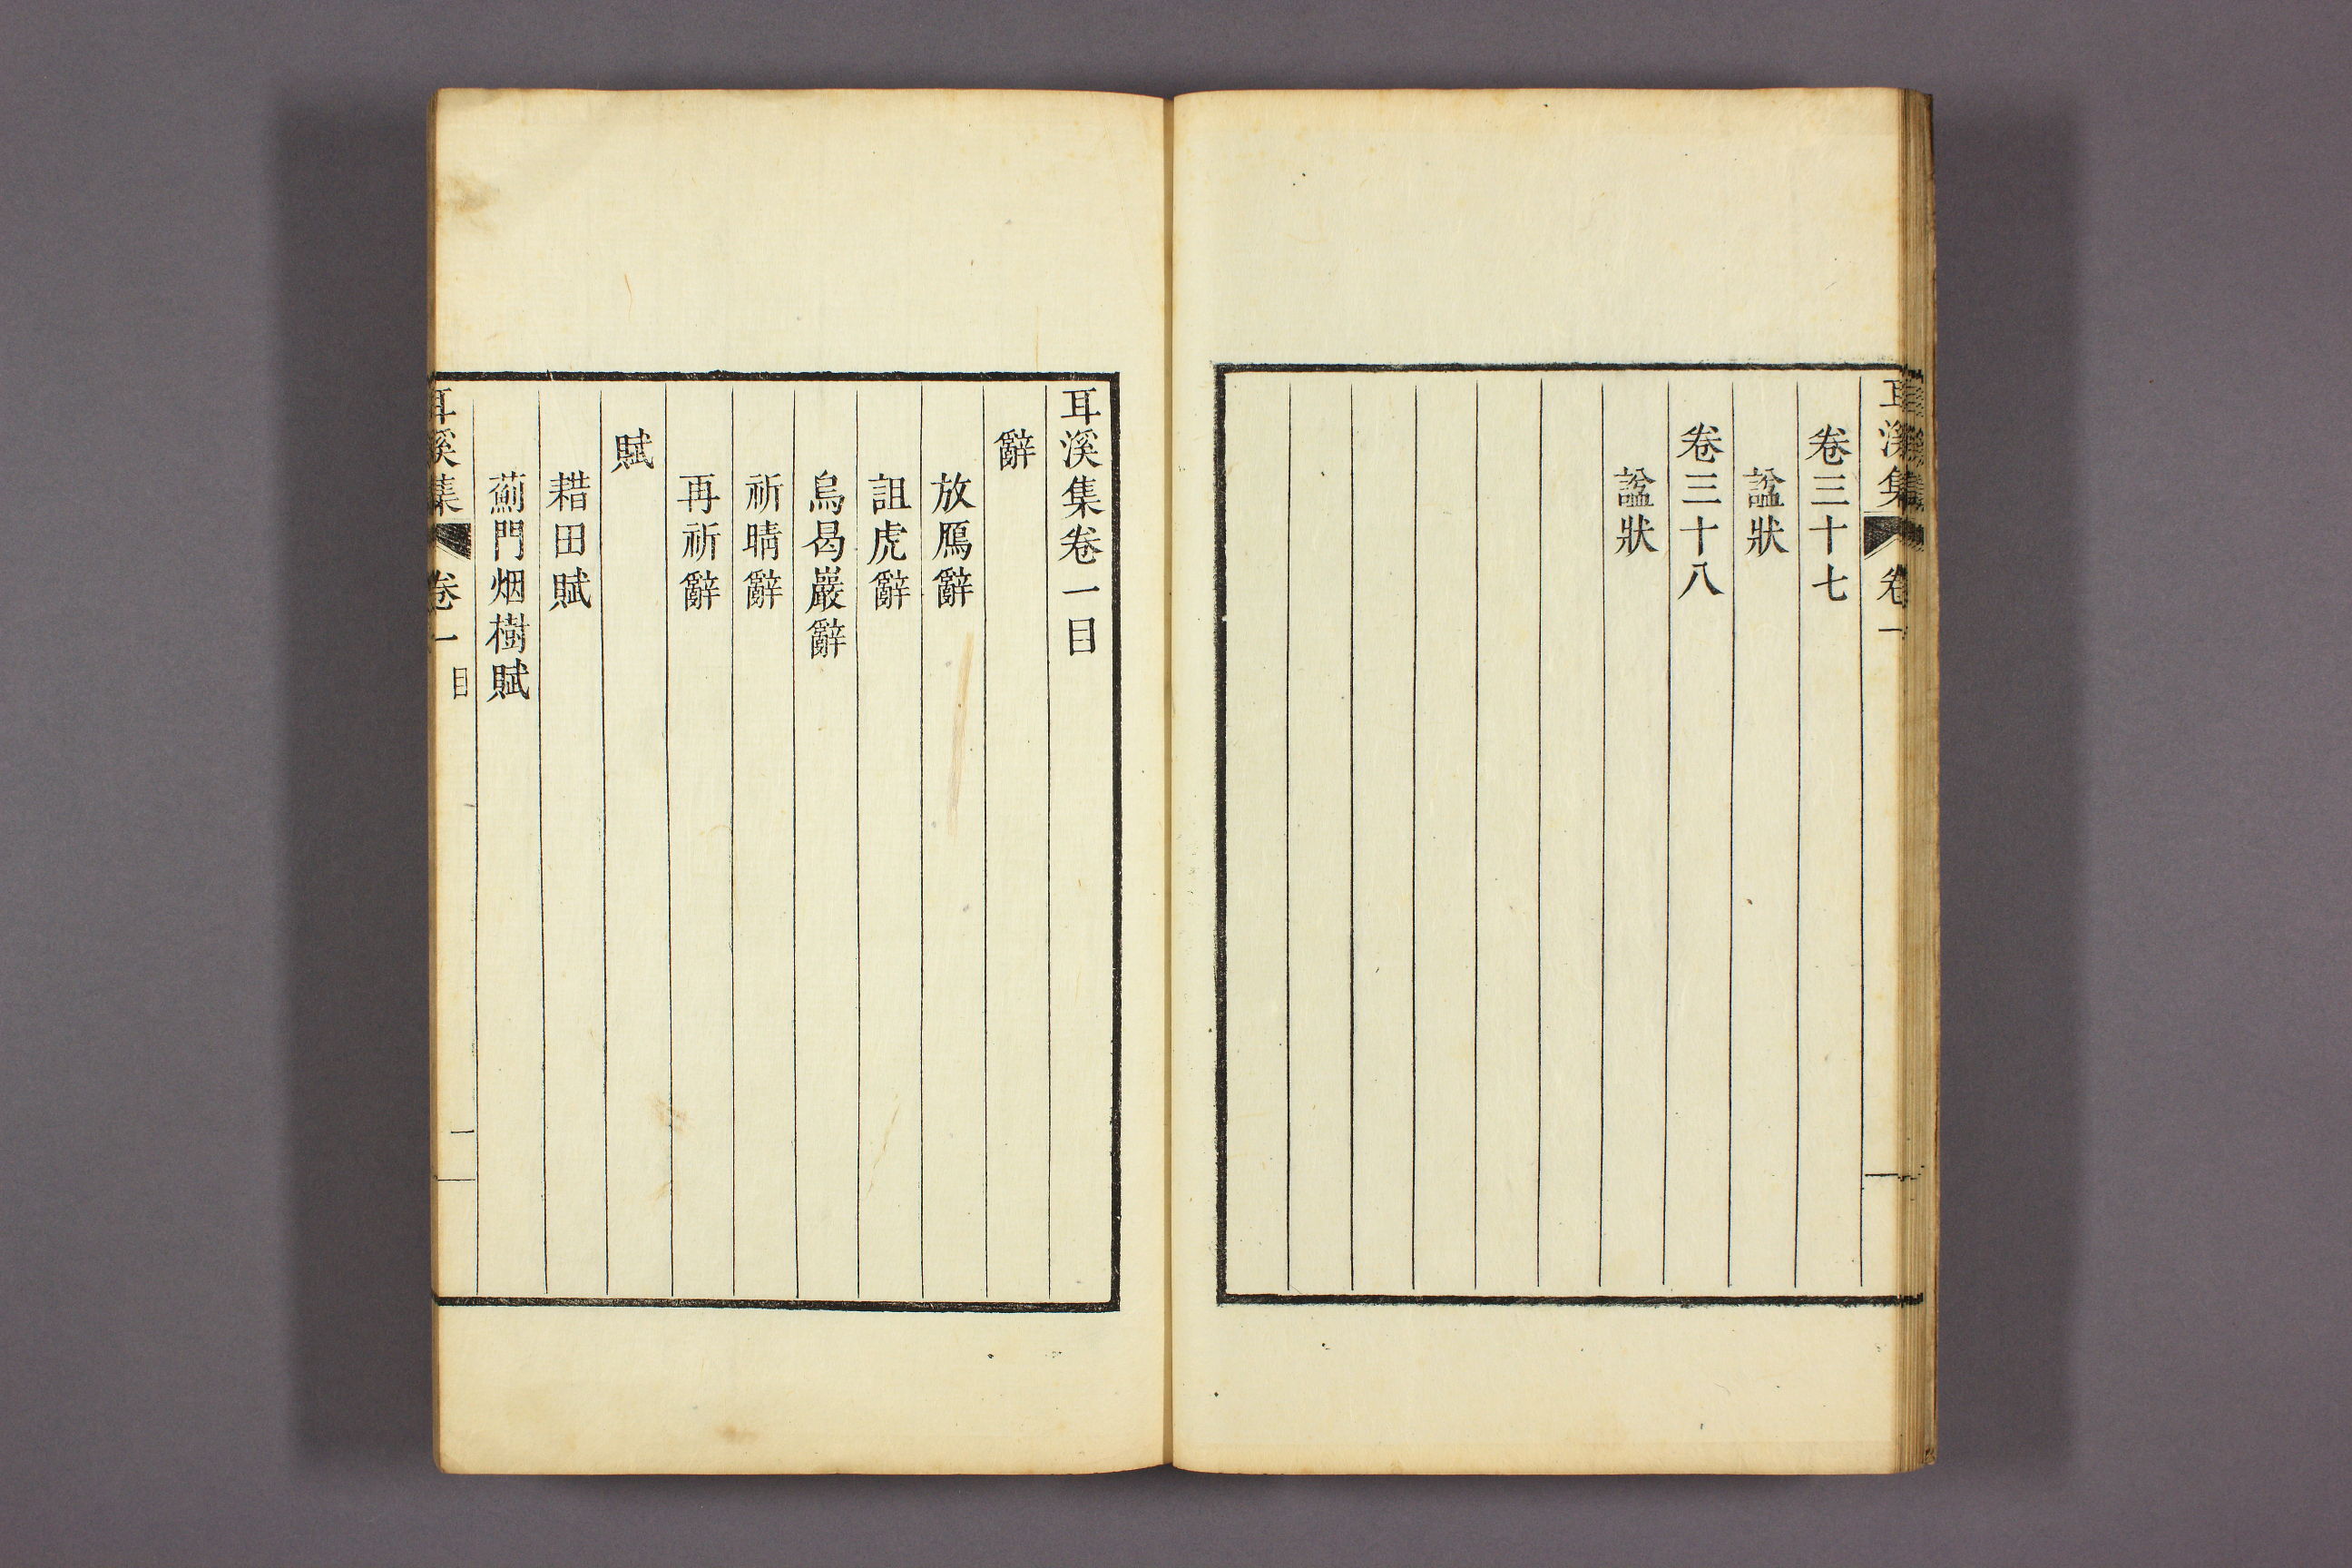 耳溪集 卷一
卷三十七
諡狀
卷三十八
諡狀
耳溪集卷一目
辭
放鴈辭
詛虎辭
烏曷巖辭
祈晴辭
再祈辭
賦
耤田賦
薊門烟樹賦
耳溪集 卷一 目 一